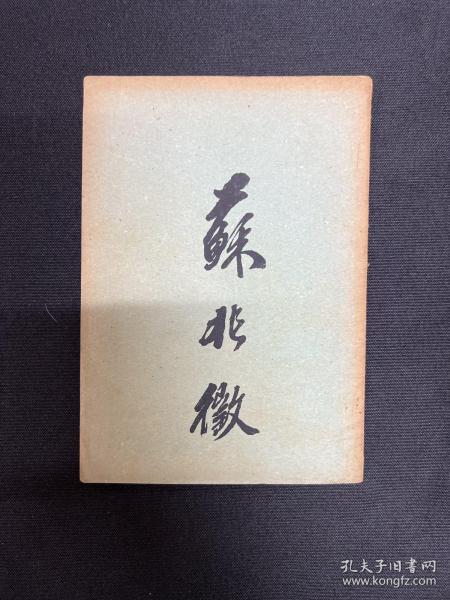 蘇北徵
孔夫子旧书网
www.kongfz.com